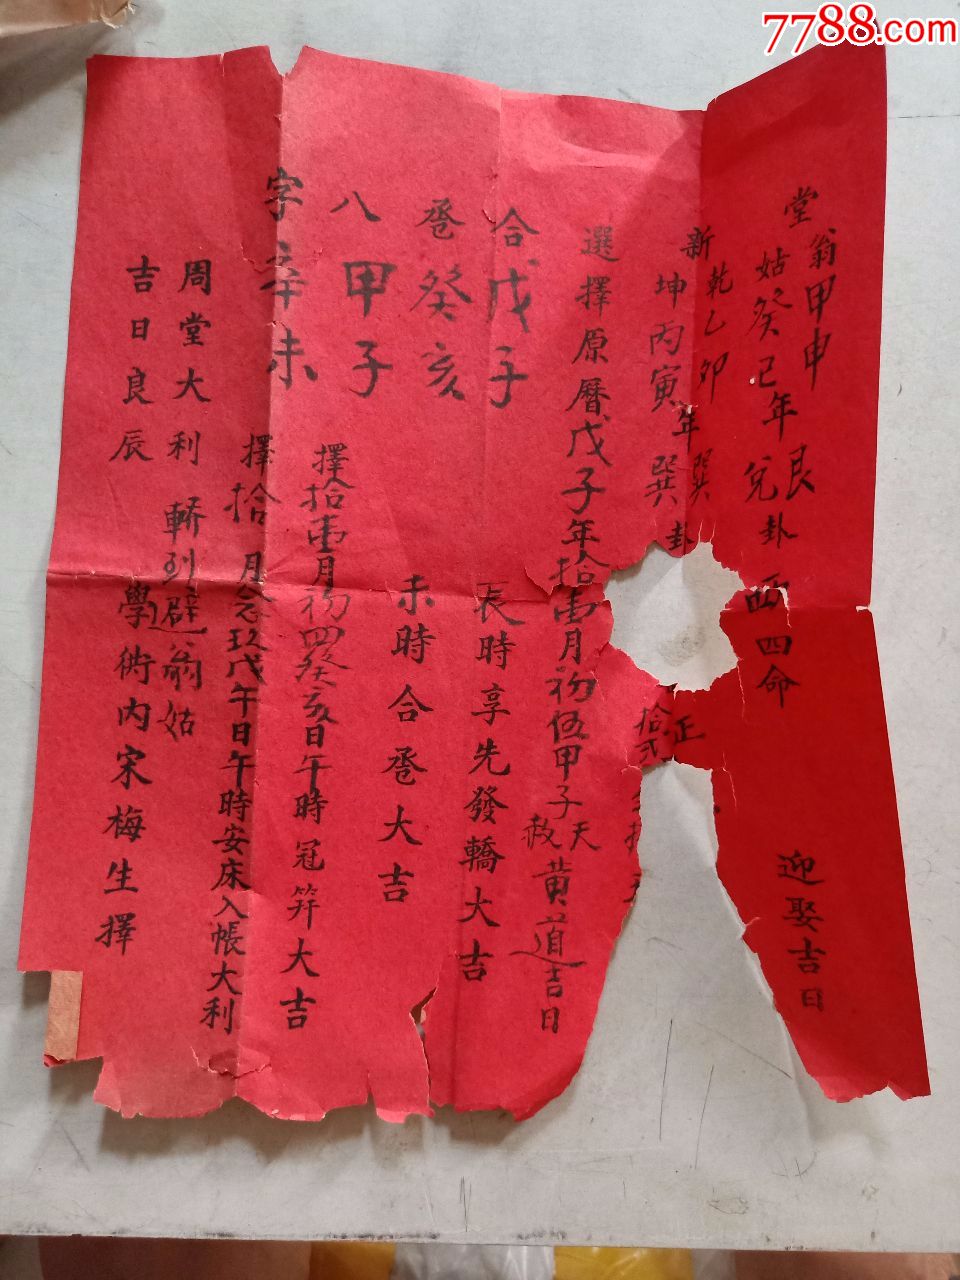 7788.com
堂翁甲申 艮
姑癸巳年 兌卦 西四命
迎娶吉日
新乾乙卯年巽卦 正
坤丙寅 巽 拾弍
選擇原曆戊子年拾壹月初伍甲子天赦黃道吉日
合戊子 辰時享先發轎大吉
卺癸亥 未時合卺大吉
八甲子 擇拾壹月初四癸亥日午時冠笄大吉
字辛未 擇拾月念玖戊午日午時安床入帳大利
周堂大利 轎到避翁姑
吉日良辰 學術內宋梅生擇